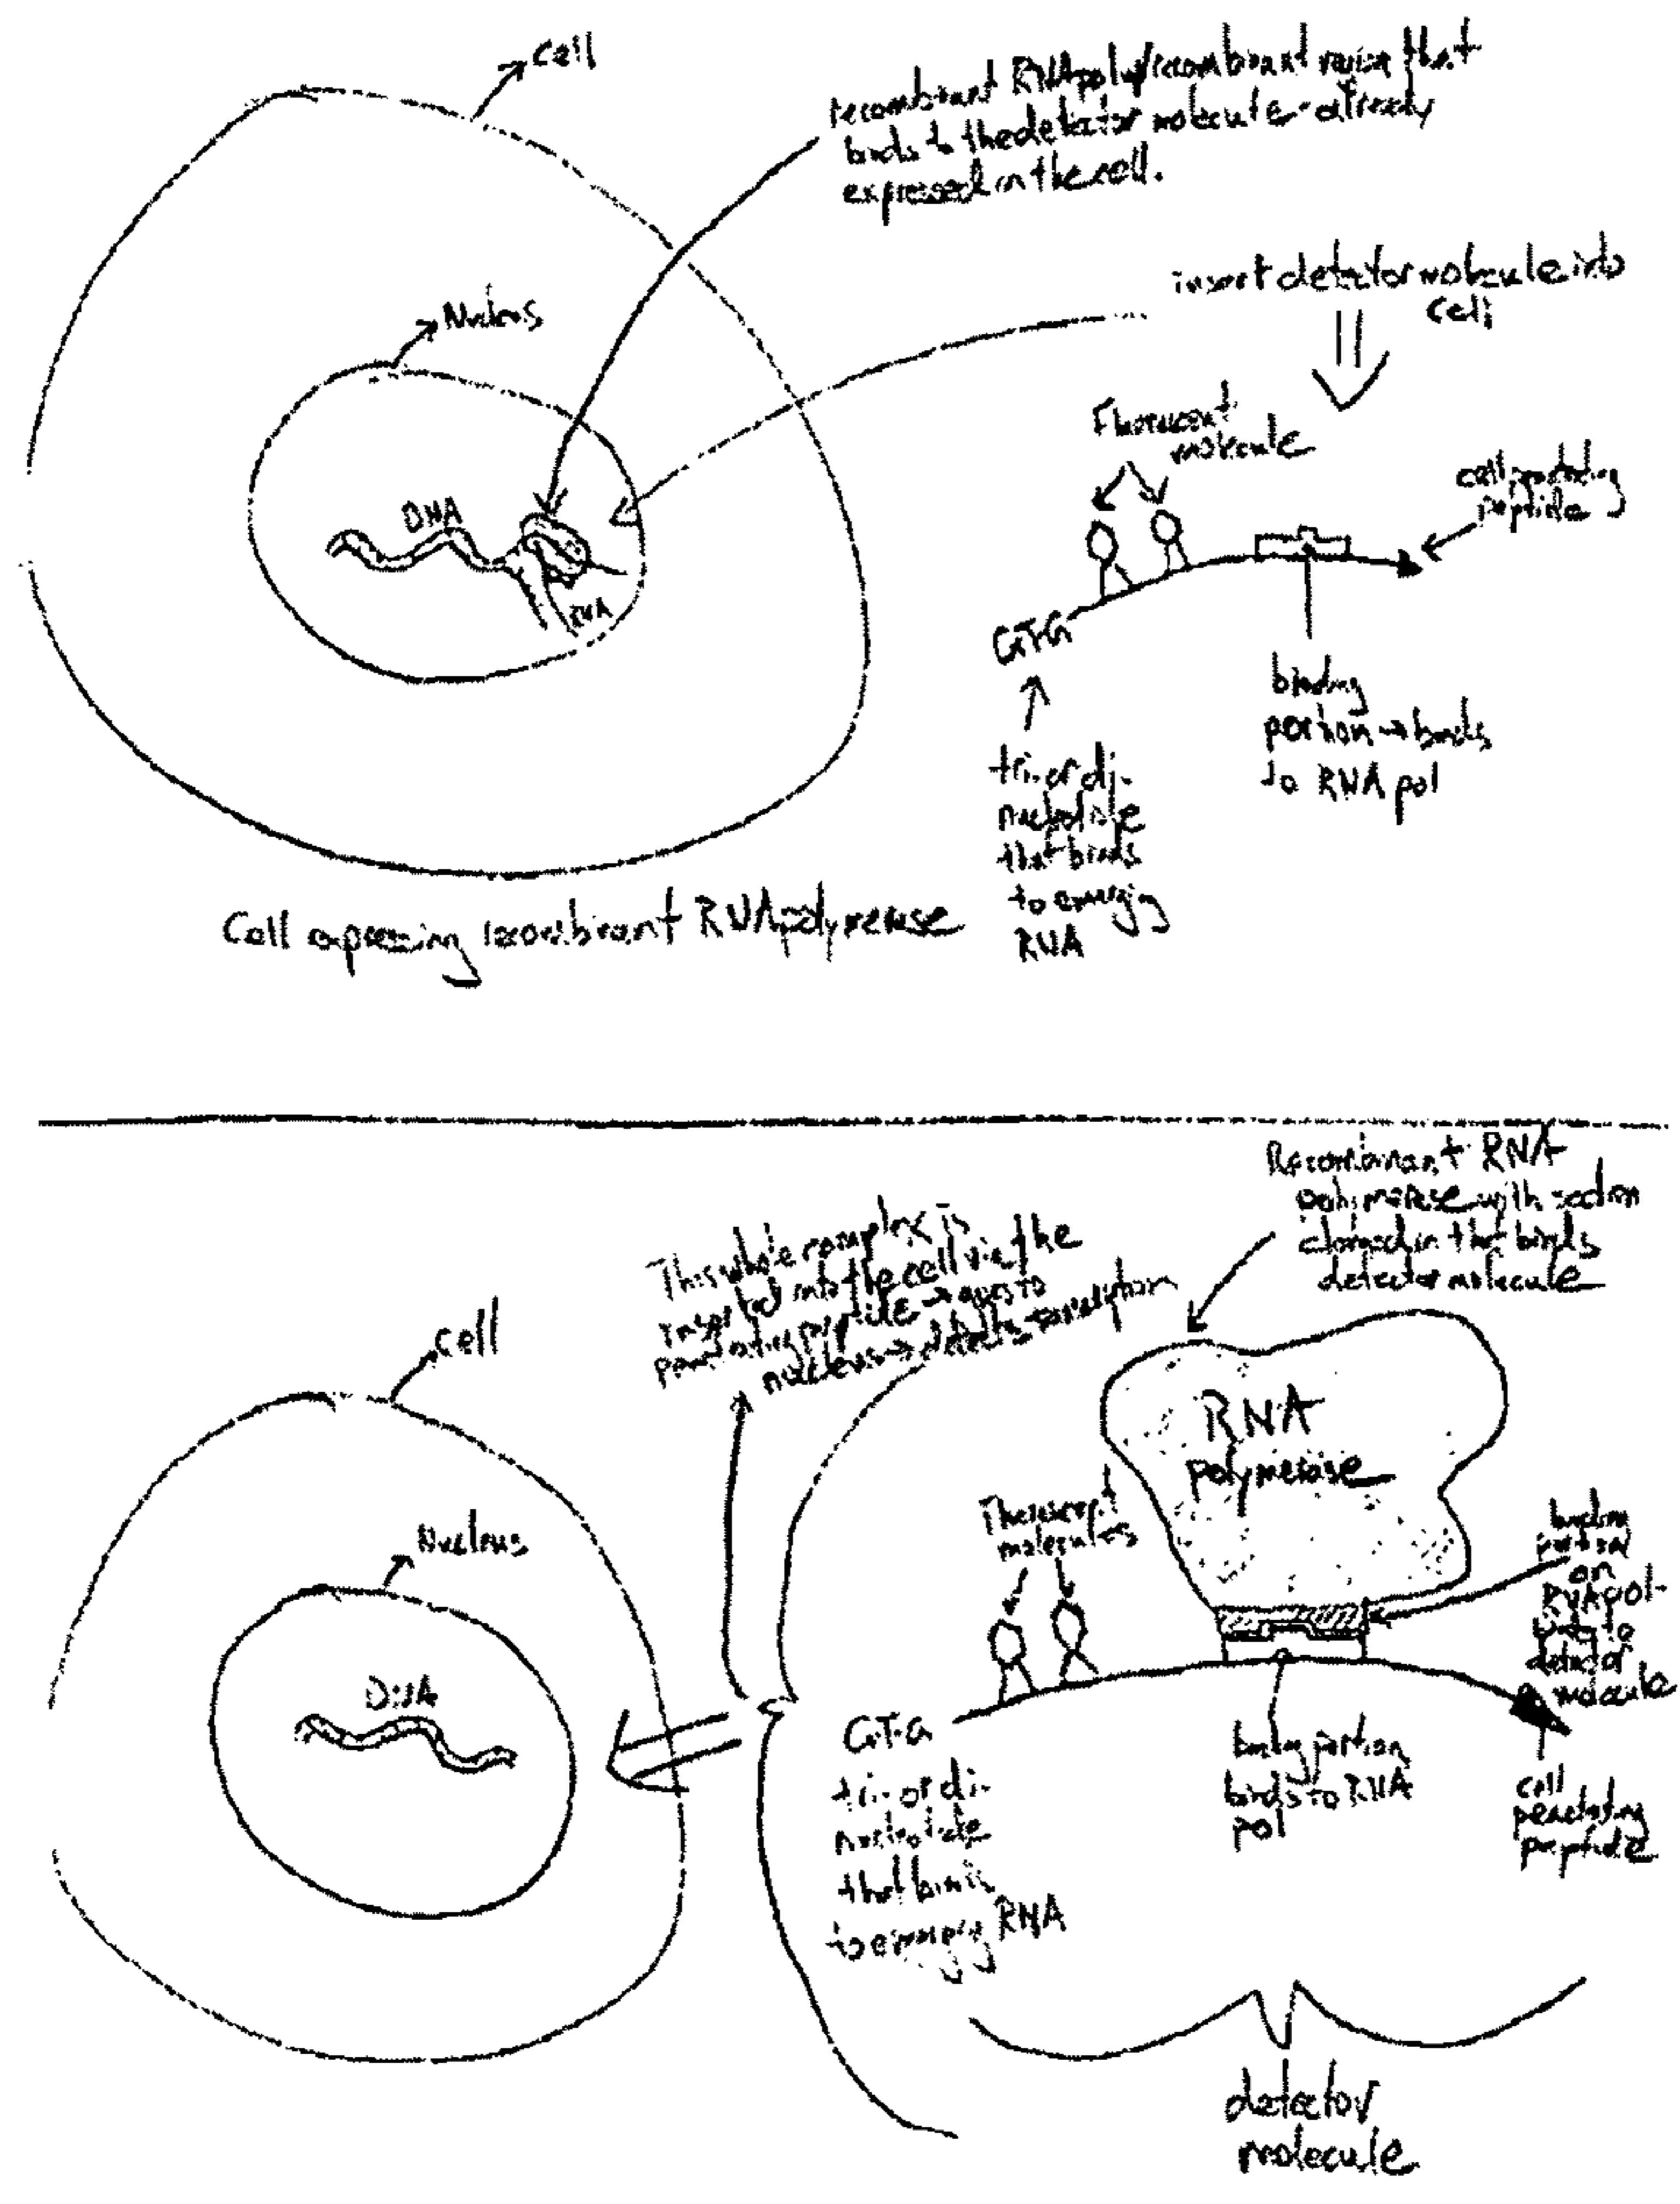 Cell
recombinant RNA poly/recombinant region that
binds to the detector molecule - already
expressed in the cell.
insert detector molecule into
Cell
Nucleus
Fluorescent
molecule
cell penetrating
peptide
DNA
RNA
GTG
binding
portion → binds
to RNA pol
tri- or di-
nucleotide
that binds
to emerging
RNA
Cell expressing recombinant RNA polymerase
Recombinant RNA
polymerase with section
cloned in that binds
detector molecule
This whole complex is
inserted into the cell via the
penetrating peptide → goes to
nucleus → detects transcription
cell
RNA
polymerase
Fluorescent
molecules
Nucleus
binding
portion
on
RNA pol -
binds to
detector
molecule
DNA
GTG
tri- or di-
nucleotide
that binds
to emerging RNA
binding portion
binds to RNA
pol
cell
penetrating
peptide
detector
molecule